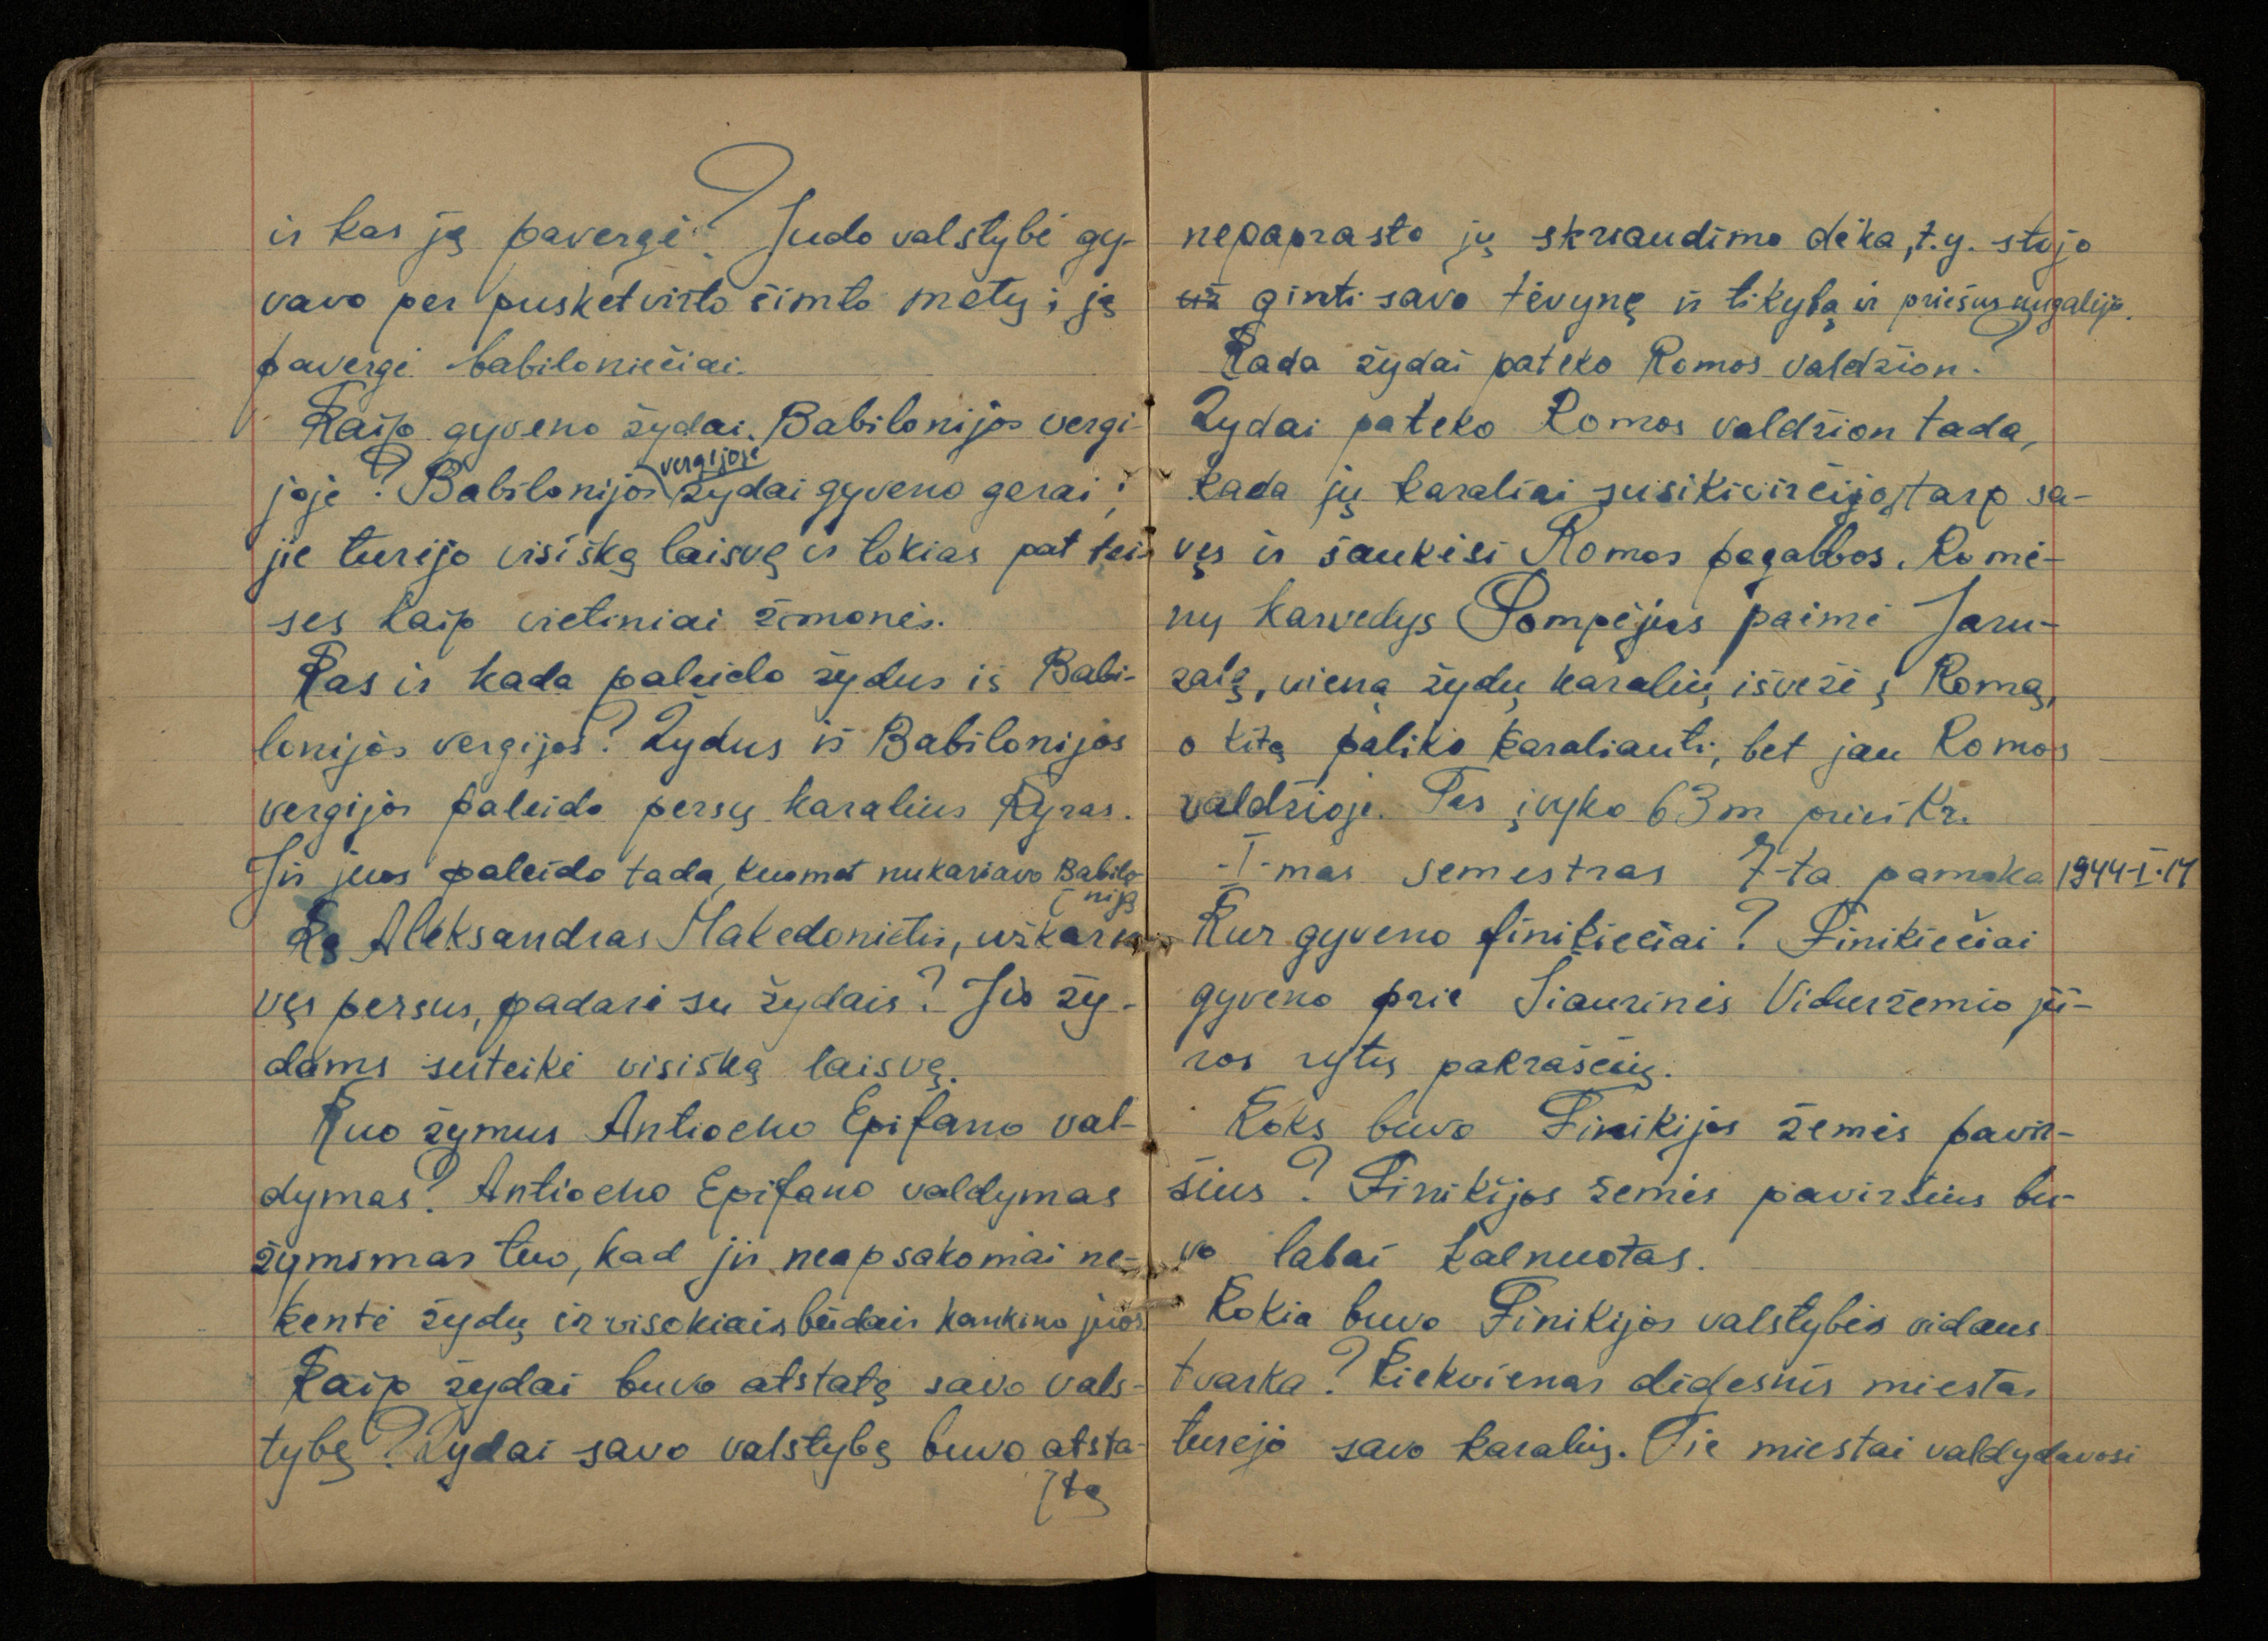 ir kas ją pavergė? Judo valstybė gy-
vavo per pusketvirto šimto metų; ją
pavergė babiloniečiai.
Kaip gyveno žydai Babilonijos vergi-
joje? Babilonijos vergijoje žydai gyveno gerai;
jie turėjo visišką laisvę ir tokias pat tei-
ses kaip vietiniai žmonės.
Kas ir kada paleido žydus iš Babi-
lonijos vergijos? Žydus iš Babilonijos
vergijos paleido persų karalius Kyras.
Jis juos paleido tada, kuomet nukariavo Babilo-
niją
Ką Aleksandras Makedonietis, užkaria-
vęs persus, padarė su žydais? Jis žy-
dams suteikė visišką laisvę.
Kuo žymus Antiocho Epifano val-
dymas? Antiocho Epifano valdymas
žymsmas tuo, kad jis neapsakomai ne-
kentė žydų ir visokiais būdais kankino juos
Kaip žydai buvo atstatę savo vals-
tybę? Žydai savo valstybę buvo atsta-
tę
nepaprasto jų skraudimo dėka, t.y. stojo
ginti savo tėvynę ir tikybą ir priešus nugalėjo.
Kada žydai pateko Romos valdžion?
Žydai pateko Romos valdžion tada,
kada jų karaliai susikivirčijo tarp sa-
vęs ir šaukėsi Romos pagalbos. Romė-
nų karvedys Pompėjus paėmė Jaru-
zalę, vieną žydų karalių išvežė į Romą,
o kitą paliko karaliauti, bet jau Romos
valdžioje. Tas įvyko 63 m prieš Kr.
-I-mas semestras 7-ta pamoka 1944-I-14
Kur gyveno finikiečiai? Finikiečiai
gyveno prie Šiaurinės Viduržemio jū-
ros rytų pakraščių.
Koks buvo Finikijos žemės pavir-
šius? Finikijos žemės paviršius bu-
vo labai kalnuotas.
Kokia buvo Finikijos valstybės vidaus
tvarka? Kiekvienas didesnis miestas
turėjo savo karalių. Tie miestai valdydavosi